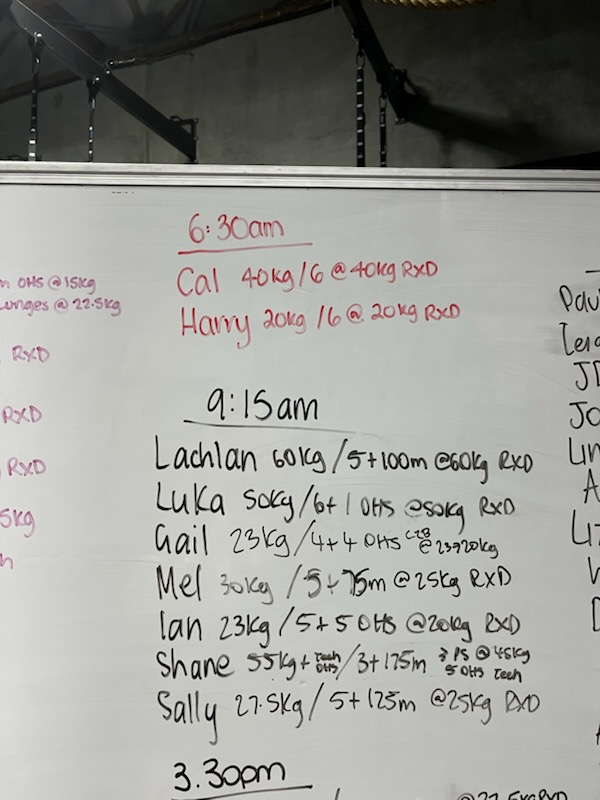 6:30am
Cal 40kg/6 @ 40kg RXD
Harry 20kg /6 @ 20kg RXD
OHS @ 15kg
@ 22.5kg
RXD
RXD
RXD
5kg
9:15am
Lachlan 60kg/5+100m @60kg RXD
Luka 50kg/6+1 OHS @50kg RXD
Gail 23kg/4+4 OHS C2B @23→20kg
Mel 30kg /5+75m @25kg RXD
Ian 23kg/5+5 OHS @20kg RXD
Shane 55kg+ Tech OHS/3+175m 3 PS @45kg 5 OHS Tech
Sally 27.5kg/5+125m @25kg RXD
3.30pm
JO